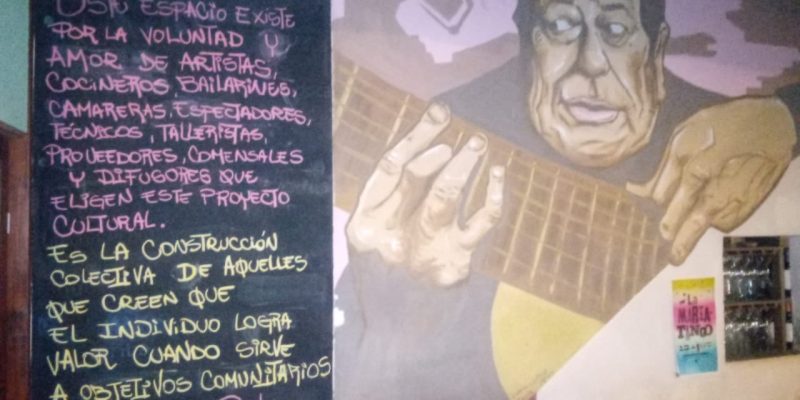 ESPACIO EXISTE
POR LA VOLUNTAD Y
AMOR DE ARTISTAS,
COCINEROS, BAILARINES,
CAMARERAS, ESPECTADORES,
TÉCNICOS, TALLERISTAS,
PROVEEDORES, COMENSALES
Y DIFUSORES QUE
ELIGEN ESTE PROYECTO
CULTURAL.
ES LA CONSTRUCCIÓN
COLECTIVA DE AQUELLES
QUE CREEN QUE
EL INDIVIDUO LOGRA
VALOR CUANDO SIRVE
A OBJETIVOS COMUNITARIOS
LA
MARIA
TANGO